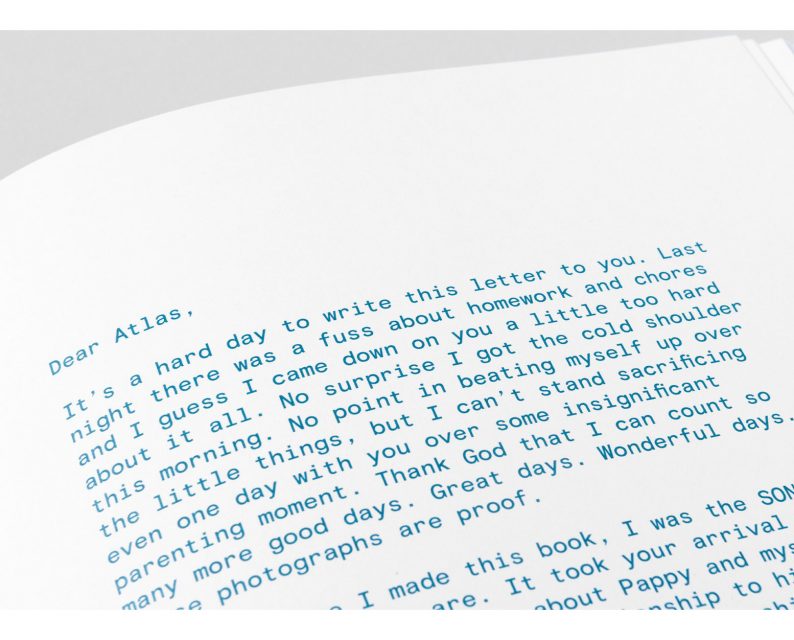 Dear Atlas,
It's a hard day to write this letter to you. Last
night there was a fuss about homework and chores
and I guess I came down on you a little too hard
about it all. No surprise I got the cold shoulder
this morning. No point in beating myself up over
the little things, but I can't stand sacrificing
even one day with you over some insignificant
parenting moment. Thank God that I can count so
many more good days. Great days. Wonderful days.
photographs are proof.
I made this book, I was the SON
are. It took your arrival
about Pappy and
to